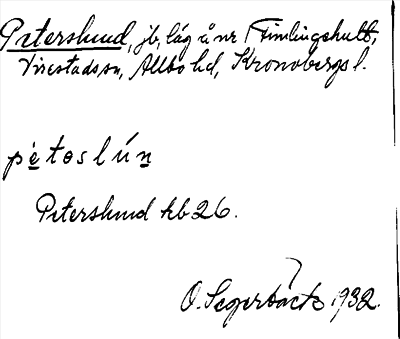 Peterslund, jb, låg å nr 1 Fimlingehult,
Virestads sn, Allbo hd, Kronobergs l.
pétoslún
Peterslund kb 26.
O. Segerbäck 1932.